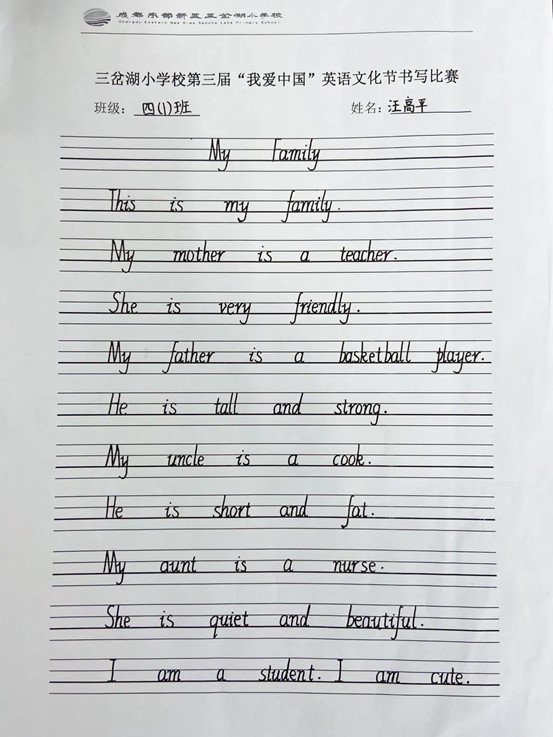 成都东部新区三岔湖小学校
Chengdu Eastern New Area Sancha Lake Primary School
三岔湖小学校第三届“我爱中国”英语文化节书写比赛
班级： 四(1)班 姓名：汪高平
My Family
This is my family.
My mother is a teacher.
She is very friendly.
My father is a basketball player.
He is tall and strong.
My uncle is a cook.
He is short and fat.
My aunt is a nurse.
She is quiet and beautiful.
I am a student. I am cute.